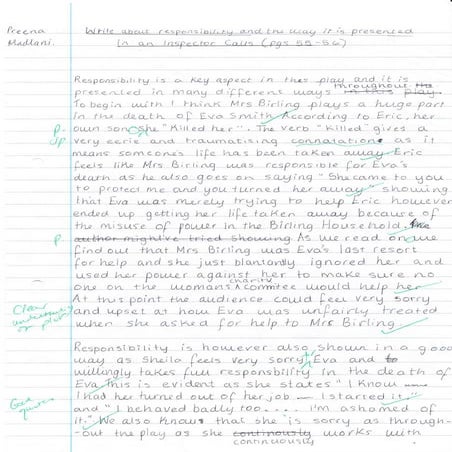 Preena Madlani.
Write about responsibility and the way it is presented
in an Inspector Calls (pgs 55-56)
Responsibility is a key aspect in this play and it is
presented in many different ways throughout the play.
To begin with I think Mrs Birling plays a huge part
in the death of Eva Smith. According to Eric, her
own son she "killed her". The verb "Killed" gives a
very eerie and traumatising connotation as it
means someone's life has been taken away. Eric
feels like Mrs Birling was responsible for Eva's
death as he also goes on saying "She came to you
to protect me and you turned her away" showing
that Eva was merely trying to help Eric however
ended up getting her life taken away because of
the misuse of power in the Birling Household. the
author might've tried showing As we read on we
find out that Mrs Birling was Eva's last resort
for help and she just blantantly ignored her and
used her power against her to make sure no
one on the woman's charity commitee would help her.
At this point the audience could feel very sorry
and upset at how Eva was unfairly treated
when she asked for help to Mrs Birling.
P-
Sp
P
Clear understanding of
Responsibility is however also shown in a good
way as Sheila feels very sorry Eva and to
willungly takes full responsbility in the death of
Eva. This is evident as she states "I know
I had her turned out of her job I started it."
and "I behaved badly too.... I'm ashamed of
it." We also know that she is sorry as through-
-out the play as she continously works with
continuously
Good quotes